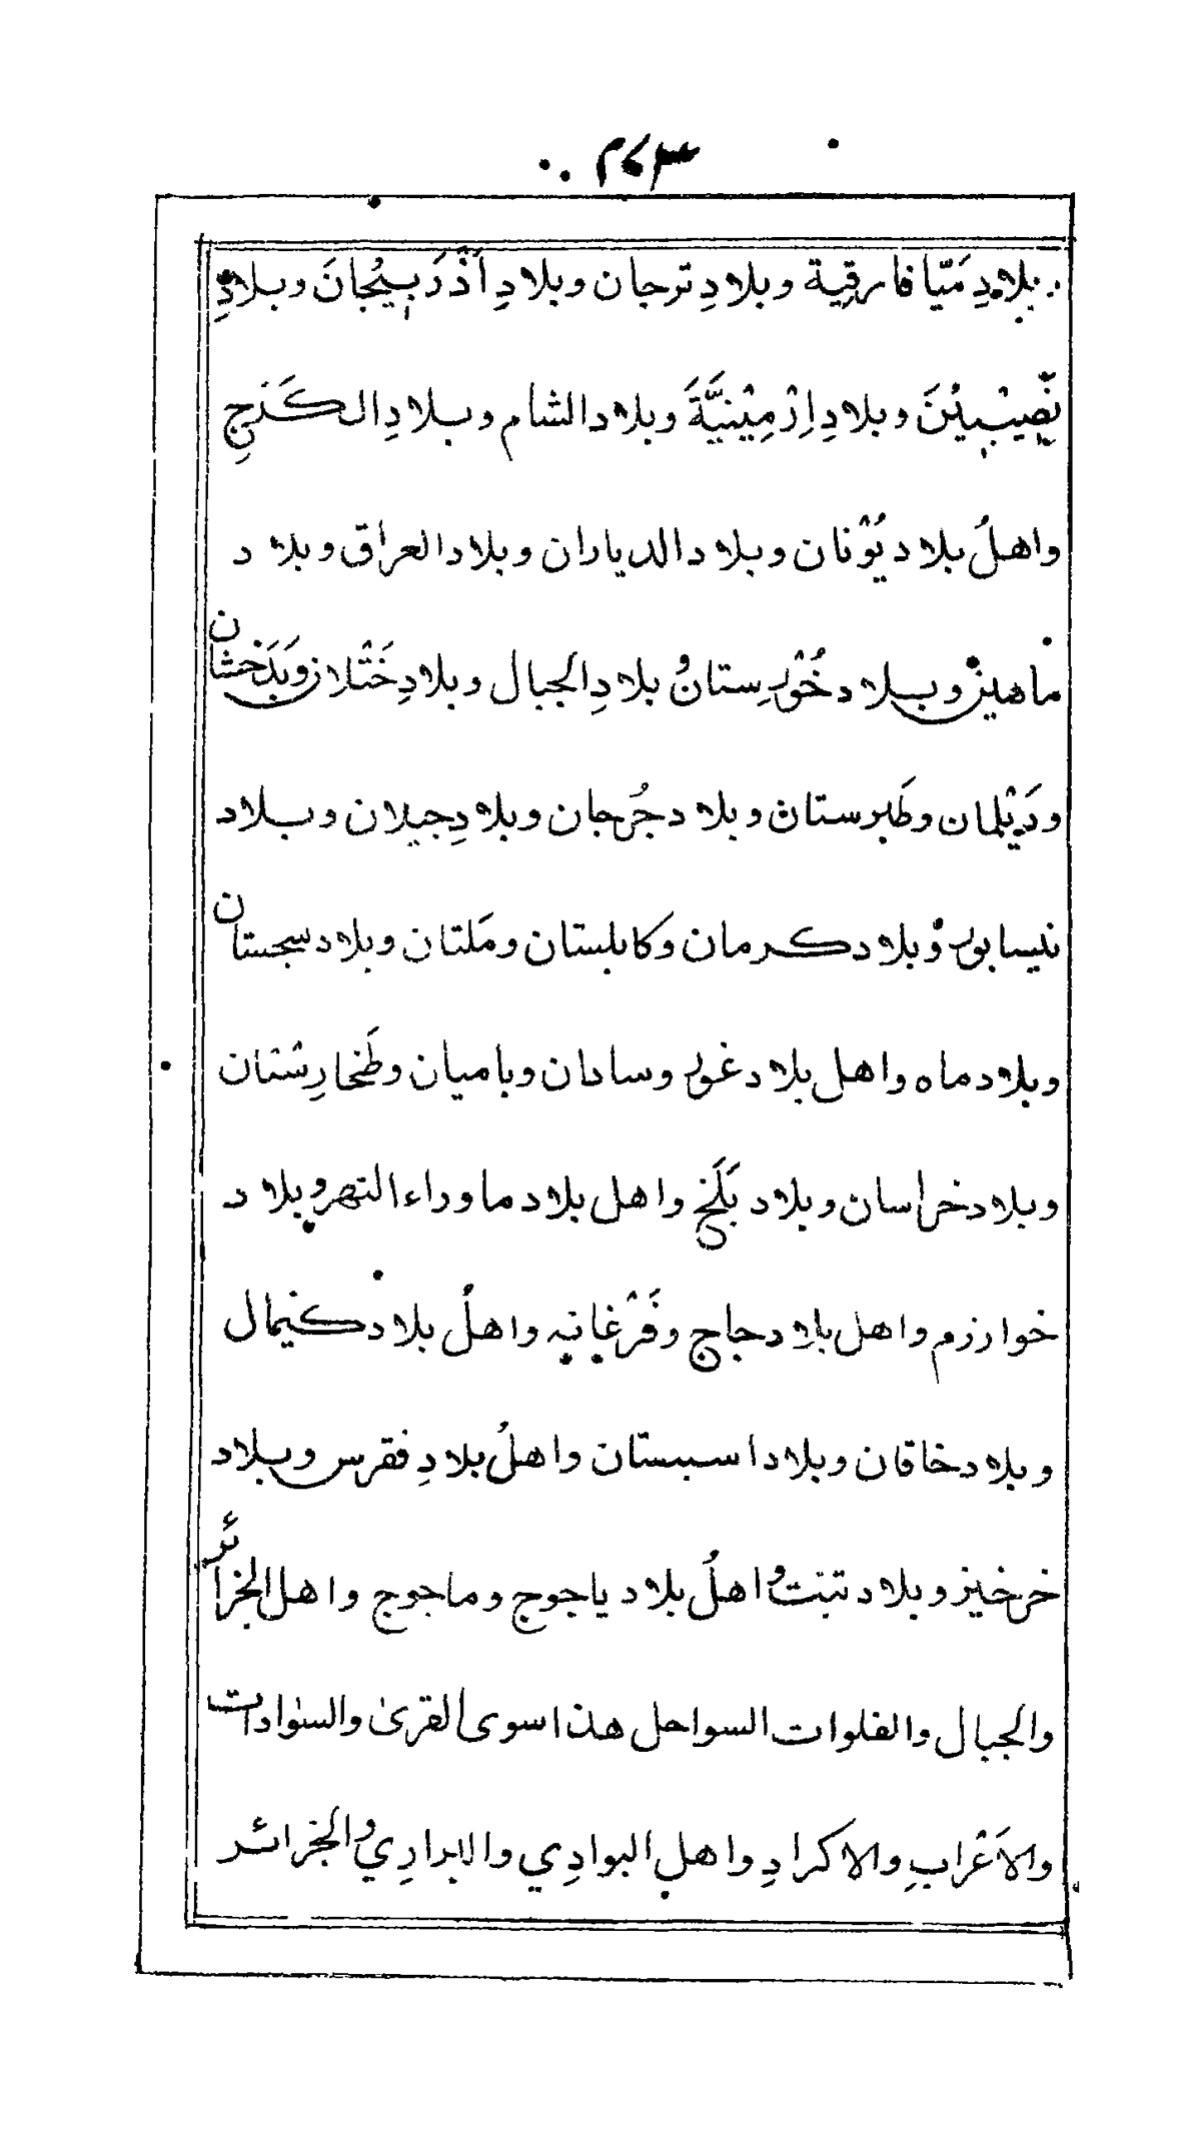 ٢٤٣
وبلادِ مَيّا فارقية وبلادِ ترجان وبلادِ اَذْرَبيْجانَ وبلادِ
نَصِيْبِيْنَ وبلادِ اِرْمِيْنِيَّةَ وبلاد الشام وبلادِ الكَرَجِ
واهلُ بلاد يُوْنان وبلاد الدياران وبلاد العراق وبلاد
ماهين وبلاد خُوْرِستانُ و بلادِ الجبال وبلادِ خَتْلان وبَدَخشان
ودَيْلمان وطَبرستان وبلاد جُرجان وبلادِ جيلان وبلاد
نيسابور وبلاد كرمان وكابلستان ومَلتان وبلاد سجستان
وبلاد ماه واهل بلاد غور وسادان وباميان وطَخارِستان
وبلاد خراسان وبلاد بَلَخ واهل بلاد ما وراء النهر وبلاد
خوارزم واهل بلاد جاج وفَرْغانيه واهلُ بلاد كنيمال
وبلاد خاقان وبلاد اسبستان واهلُ بلادِ فقرس وبلاد
خرخيز وبلاد تبت و اهلُ بلاد ياجوج وماجوج واهل الجزائر
والجبال والفلوات السواحل هذا سوى القرىٰ والسوادات
والاَعْرابِ والاكرادِ واهل البوادِي والابرارِي والجزائر